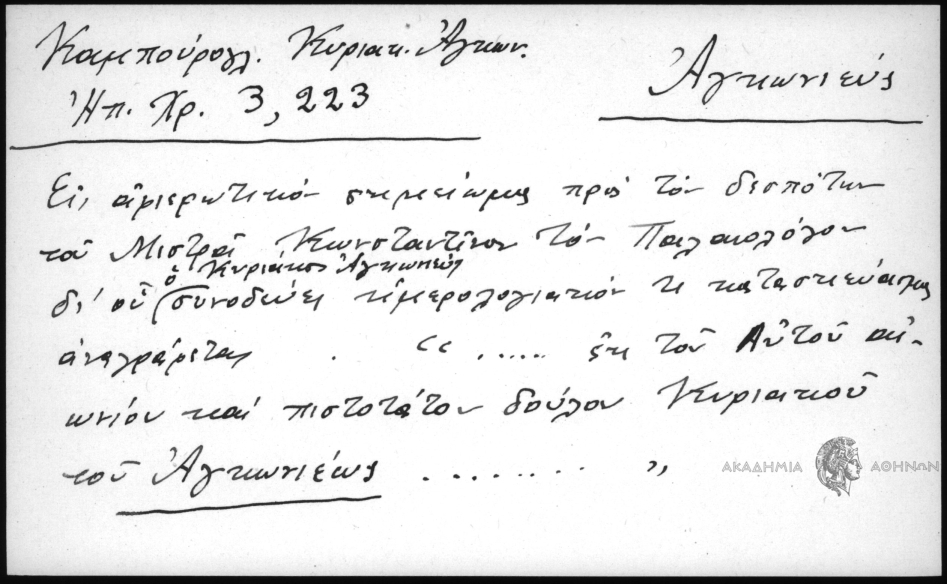 Καμπούρογλ. Κυριακ. Ἀγκων.
Ἠπ. Χρ. 3, 223
Ἀγκωνιεύς
Εἰς ἀφιερωτικὸν σημείωμα πρὸς τὸν δεσπότην
τοῦ Μιστρᾶ Κωνσταντῖνον τὸν Παλαιολόγον
ὁ Κυριάκος Ἀγκωνιεύς
δι' οὗ συνοδεύει ἡμερολογιακόν τι κατασκεύασμα
ἀναγράφεται . " ...... ἐκ τοῦ Αὐτοῦ αἰ-
ωνίου καὶ πιστοτάτου δούλου Κυριακοῦ
τοῦ Ἀγκωνιέως ........ "
ΑΚΑΔΗΜΙΑ ΑΘΗΝΩΝ